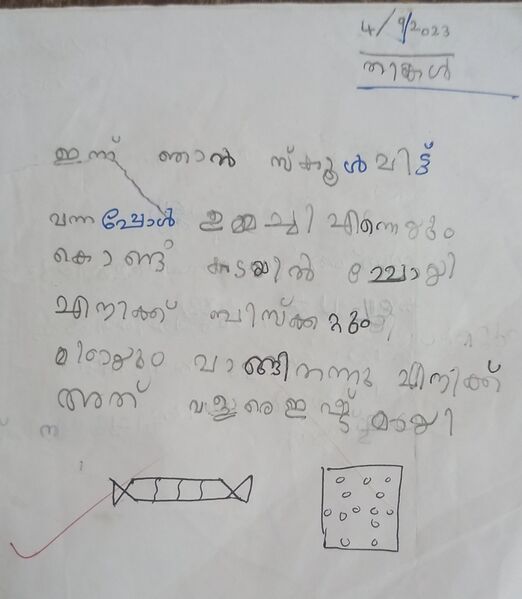 4/9/2023
തിങ്കൾ
ഇന്ന് ഞാൻ സ്കൂൾ വിട്ട്
വന്നപ്പോൾ ഉമ്മച്ചി എന്നെയും
കൊണ്ട് കടയിൽ പോയി
എനിക്ക് ബിസ്ക്കറ്റും
മിഠായും വാങ്ങിതന്നു എനിക്ക്
അത് വളരെ ഇഷ്ട്മായി